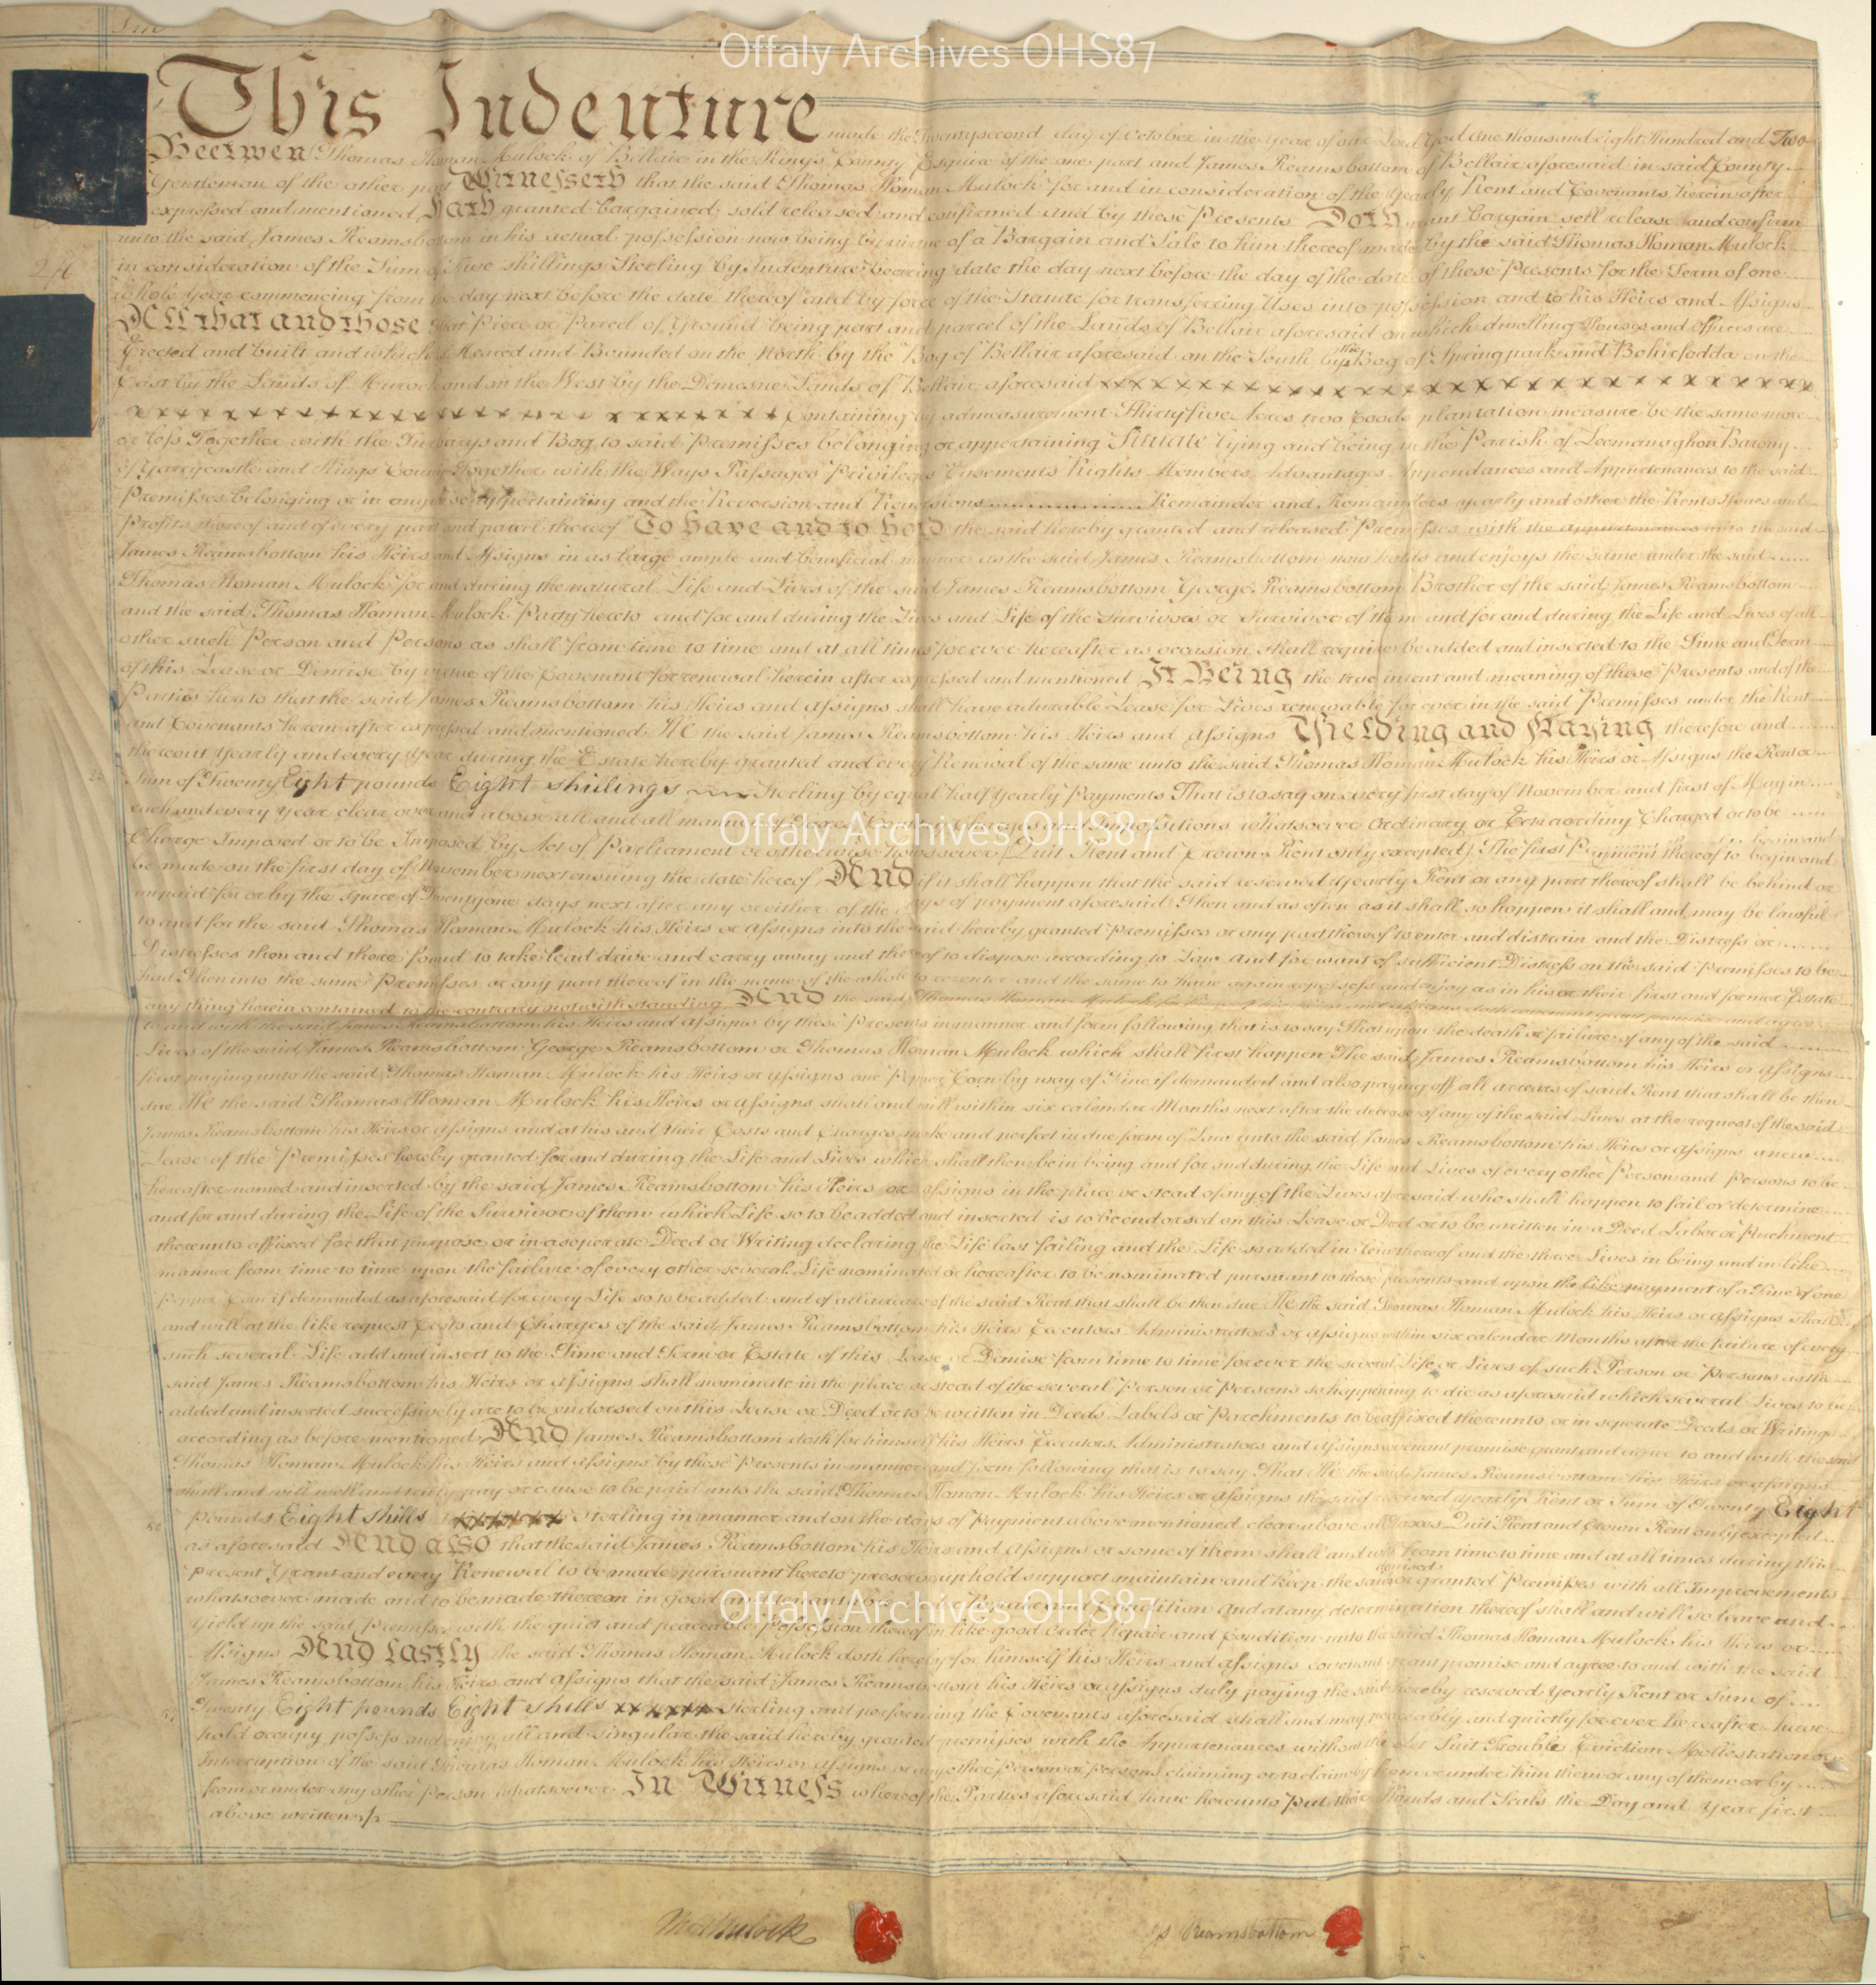 Offaly Archives OHS87
This Indenture made the Twentysecond day of October in the Year of our Lord God One thousand eight Hundred and Two
Between Thomas Homan Mulock of Bellair in the Kings County Esquire of the one part and James Reamsbottom of Bellair aforesaid in said County
Gentleman of the other part Witnesseth that the said Thomas Homan Mulock for and in consideration of the Yearly Rent and Covenants herein after
expressed and mentioned, Hath granted bargained sold released and confirmed and by these Presents Doth grant bargain sell release and confirm
unto the said James Reamsbottom in his actual possession now being by virtue of a Bargain and Sale to him thereof made by the said Thomas Homan Mulock
in consideration of the Sum of Five shillings Sterling by Indenture bearing date the day next before the day of the date of these Presents for the Term of one
whole Year commencing from the day next before the date thereof and by force of the Statute for transferring Uses into possession and to his Heirs and Assigns
All that and those that Piece or Parcel of Ground being part and parcel of the Lands of Bellair aforesaid on which dwelling Houses and Offices are
Erected and built and which is Meared and Bounded on the North by the Bog of Bellair aforesaid on the South by the Bog of Springpark and Bohirfodda on the
East by the Lands of and on the West by the Demesne Lands of Bellair aforesaid xxxxxxxxxxxxxxxxxxxxxxxxxxx
xxxxxxxxxxxxxxxxxxxxxxxx Containing by admeasurement Thirty five Acres two Roods plantation measure be the same more
or less Together with the and Bog to said Premisses belonging or appertaining Situate lying and being in the Parish of Leemanaghan Barony
of Garrycastle and Kings County Together with the Ways Passages Privileges Easements Rights Members Advantages Appendances and Appurtenances to the said
Premisses belonging or in any wise appertaining and the Reversion and Reversions Remainder and Remainders yearly and other the Rents Issues and
Profits thereof and of every part and parcel thereof To have and to hold the said hereby granted and released Premisses with the appurtenances unto the said
James Reamsbottom his Heirs and Assigns in as large ample and beneficial manner as the said James Reamsbottom now holds and enjoys the same under the said
Thomas Homan Mulock for and during the natural Life and Lives of the said James Reamsbottom George Reamsbottom Brother of the said James Reamsbottom
and the said Thomas Homan Mulock Party hereto and for and during the Lives and Life of the Survivors or Survivor of them and for and during the Life and Lives of all
other such Person and Persons as shall from time to time and at all times for ever hereafter as occasion shall require be added and inserted to the Time and Term
of this Lease or Demise by virtue of the Covenant for renewal herein after expressed and mentioned It Being the true intent and meaning of these Presents and of the
Parties hereto that the said James Reamsbottom his Heirs and Assigns shall have a durable Lease for Lives renewable for ever in the said Premisses under the Rent
and Covenants herein after expressed and mentioned He the said James Reamsbottom his Heirs and Assigns Yielding and Paying therefore and
thereout Yearly and every Year during the Estate hereby granted and every Renewal of the same unto the said Thomas Homan Mulock his Heirs or Assigns the Rent or
Sum of Twenty Eight pounds Eight shillings Sterling by equal half Yearly Payments That is to say on every first day of November and first of May in
each and every year clear over and above all and all manner of Taxes Charges and Impositions whatsoever Ordinary or Extraordinary Charged or to be
Offaly Archives OHS87
Charge Imposed or to be Imposed by Act of Parliament or otherwise howsoever (Quit Rent and Crown Rent only excepted) The first Payment thereof to begin and
be made on the first day of November next ensuing the date hereof And if it shall happen that the said reserved Yearly Rent or any part thereof shall be behind or
unpaid for or by the space of Twentyone days next after any or either of the days of payment aforesaid Then and as often as it shall so happen it shall and may be lawful
to and for the said Thomas Homan Mulock his Heirs or Assigns into the said hereby granted Premisses or any part thereof to enter and distrain and the Distress or
Distresses then and there found to take lead drive and carry away and thereof to dispose according to Law and for want of sufficient Distress on the said Premisses to be
had Then into the same Premisses or any part thereof in the name of the whole to reenter and the same to have again repossess and enjoy as in his or their first and former Estate
any thing herein contained to the contrary notwithstanding And the said Thomas Homan Mulock
to and with the said James Reamsbottom his Heirs and Assigns by these Presents in manner and form following that is to say That upon the death or failure of any of the said
Lives of the said James Reamsbottom George Reamsbottom or Thomas Homan Mulock which shall first happen The said James Reamsbottom his Heirs or Assigns
first paying unto the said Thomas Homan Mulock his Heirs or Assigns one Pepper Corn by way of Fine if demanded and also paying off all arrears of said Rent that shall be then
due He the said Thomas Homan Mulock his Heirs or Assigns shall and will within six calendar Months next after the decease of any of the said Lives at the request of the said
James Reamsbottom his Heirs or Assigns and at his and their Costs and Charges make and perfect in due form of Law unto the said James Reamsbottom his Heirs or Assigns a new
Lease of the Premisses hereby granted for and during the Life and Lives which shall then be in being and for and during the Life and Lives of every other Person and Persons to be
hereafter named and inserted by the said James Reamsbottom his Heirs or Assigns in the place or stead of any of the Lives aforesaid who shall happen to fail or determine
and for and during the Life of the Survivor of them which Life so to be added and inserted is to be endorsed on this Lease or Deed or to be written in a Deed Label or Parchment
thereunto affixed for that purpose or in a seperate Deed or Writing declaring the Life last failing and the Life so added in lieu thereof and the three Lives in being and in like
manner from time to time upon the failure of every other several Life nominated or hereafter to be nominated pursuant to these presents and upon the like payment of a Fine of one
Pepper Corn if demanded as aforesaid for every Life so to be added and of all arrears of the said Rent that shall be then due He the said Thomas Homan Mulock his Heirs or Assigns shall
and will at the like request Costs and Charges of the said James Reamsbottom his Heirs Executors Administrators or Assigns within six calendar Months after the failure of every
such several Life add and insert to the Time and Term or Estate of this Lease or Demise from time to time forever the several Life or Lives of such Person or Persons as the
said James Reamsbottom his Heirs or Assigns shall nominate in the place or stead of the several Person or Persons so happening to die as aforesaid which several Lives to be
added and inserted successively are to be endorsed on this Lease or Deed or to be written in Deeds Labels or Parchments to be affixed thereunto or in seperate Deeds or Writings
according as before mentioned And James Reamsbottom doth for himself his Heirs Executors Administrators and Assigns covenant promise grant and agree to and with the said
Thomas Homan Mulock his Heirs and Assigns by these Presents in manner and form following that is to say That He the said James Reamsbottom his Heirs or Assigns
shall and will well and truly pay or cause to be paid unto the said Thomas Homan Mulock his Heirs or Assigns the said reserved yearly Rent or Sum of Twenty Eight
pounds Eight shills xxxxxxx Sterling in manner and on the days of Payment above mentioned clear above all Taxes Quit Rent and Crown Rent only excepted
as aforesaid And also that the said James Reamsbottom his Heirs and Assigns or some of them shall and will from time to time and at all times during this
present Grant and every Renewal to be made pursuant hereto preserve uphold support maintain and keep the said demised or granted Premisses with all Improvements
whatsoever made and to be made thereon in good and tenantable Repair and Condition and at any determination thereof shall and will so leave and
Offaly Archives OHS87
Yield up the said Premisses with the quiet and peaceable Possession thereof in like good Order Repair and Condition unto the said Thomas Homan Mulock his Heirs or
Assigns And lastly the said Thomas Homan Mulock doth hereby for himself his Heirs and Assigns covenant grant promise and agree to and with the said
James Reamsbottom his Heirs and Assigns that the said James Reamsbottom his Heirs or Assigns duly paying the said hereby reserved Yearly Rent or Sum of
Twenty Eight pounds Eight shills xxxxxx Sterling and performing the Covenants aforesaid shall and may peaceably and quietly for ever hereafter have
hold occupy possess and enjoy all and singular the said hereby granted premisses with the Appurtenances without the Let Suit Trouble Eviction Mollestation or
Interruption of the said Thomas Homan Mulock his Heirs or Assigns or any other Person or Persons claiming or to claim by from or under him them or any of them or by
from or under any other Person whatsoever In Witness whereof the Parties aforesaid have hereunto put their Hands and Seals the Day and Year first
above written
Mulock
Js Reamsbottom